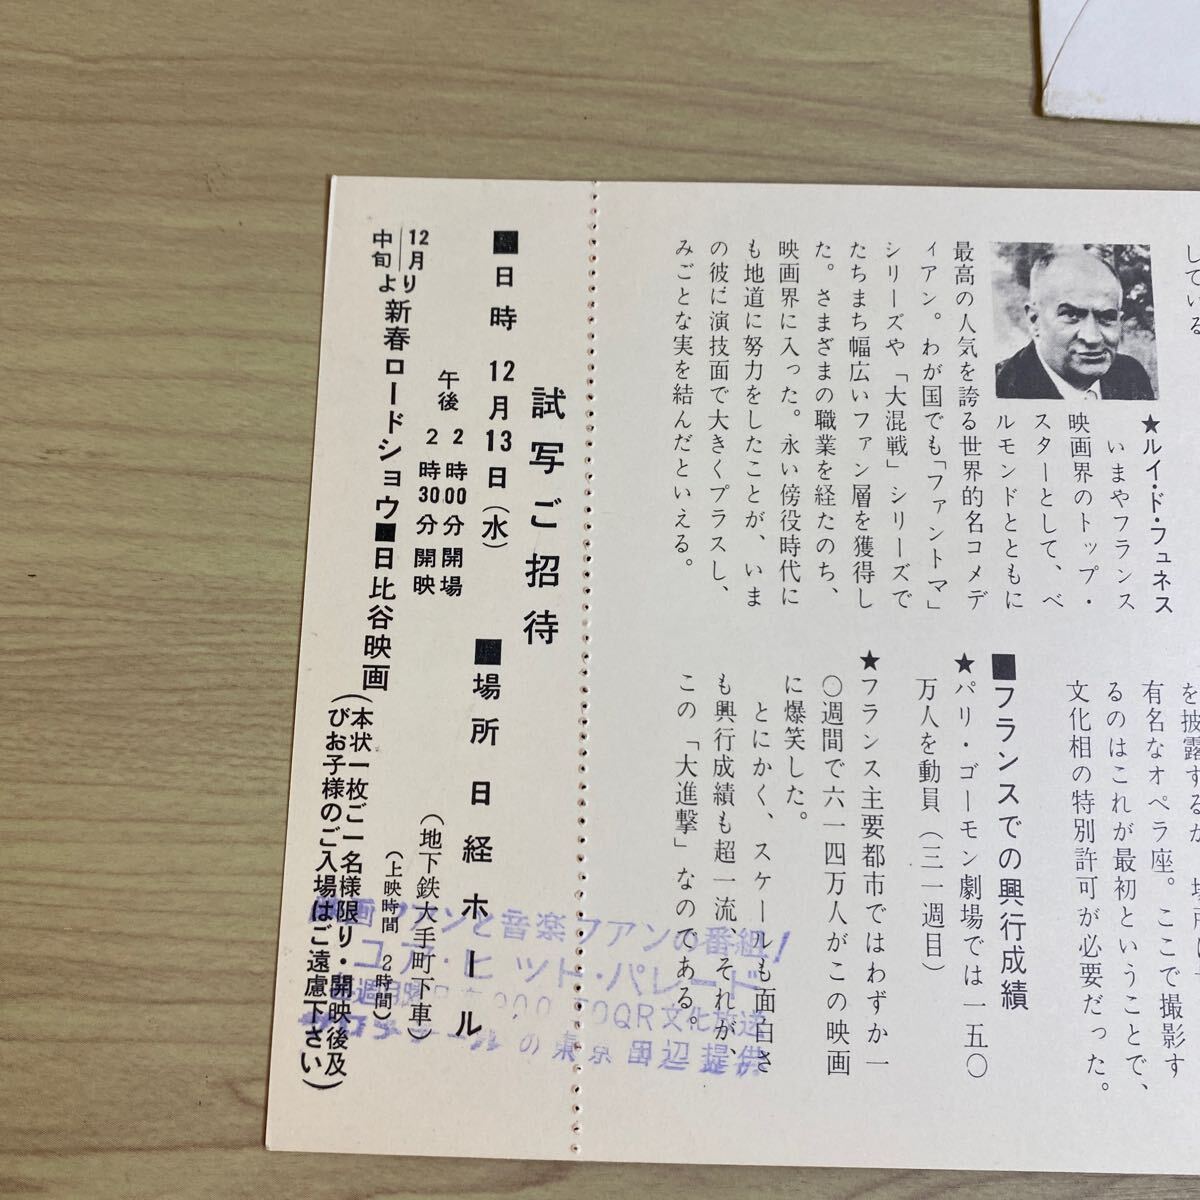 している
★ルイ・ド・フュネス
いまやフランス
映画界のトップ・
スターとして、ベ
ルモンドとともに
最高の人気を誇る世界的名コメデ
ィアン。わが国でも「ファントマ」
シリーズや「大混戦」シリーズで
たちまち幅広いファン層を獲得し
た。さまざまの職業を経たのち、
映画界に入った。永い傍役時代に
も地道に努力をしたことが、いま
の彼に演技面で大きくプラスし、
みごとな実を結んだといえる。
を披露するが
有名なオペラ座。ここで撮影す
るのはこれが最初ということで、
文化相の特別許可が必要だった。
■フランスでの興行成績
★パリ・ゴーモン劇場では一五〇
万人を動員（三一週目）
★フランス主要都市ではわずか一
〇週間で六一四万人がこの映画
に爆笑した。
とにかく、スケールも面白さ
も興行成績も超一流、それが、
この「大進撃」なのである。
試写ご招待
■日時 12月13日（水）
午後 2時00分開場
2時30分開映
■場所 日経ホール
（地下鉄大手町下車）
（上映時間 2時間）
12月中旬より新春ロードショウ■日比谷映画
（本状一枚ご一名様限り・開映後及
びお子様のご入場はご遠慮下さい）
映画ファンと音楽ファンの番組！
ユア・ヒットパレード
毎週月曜日 QR文化放送
の東京田辺提供